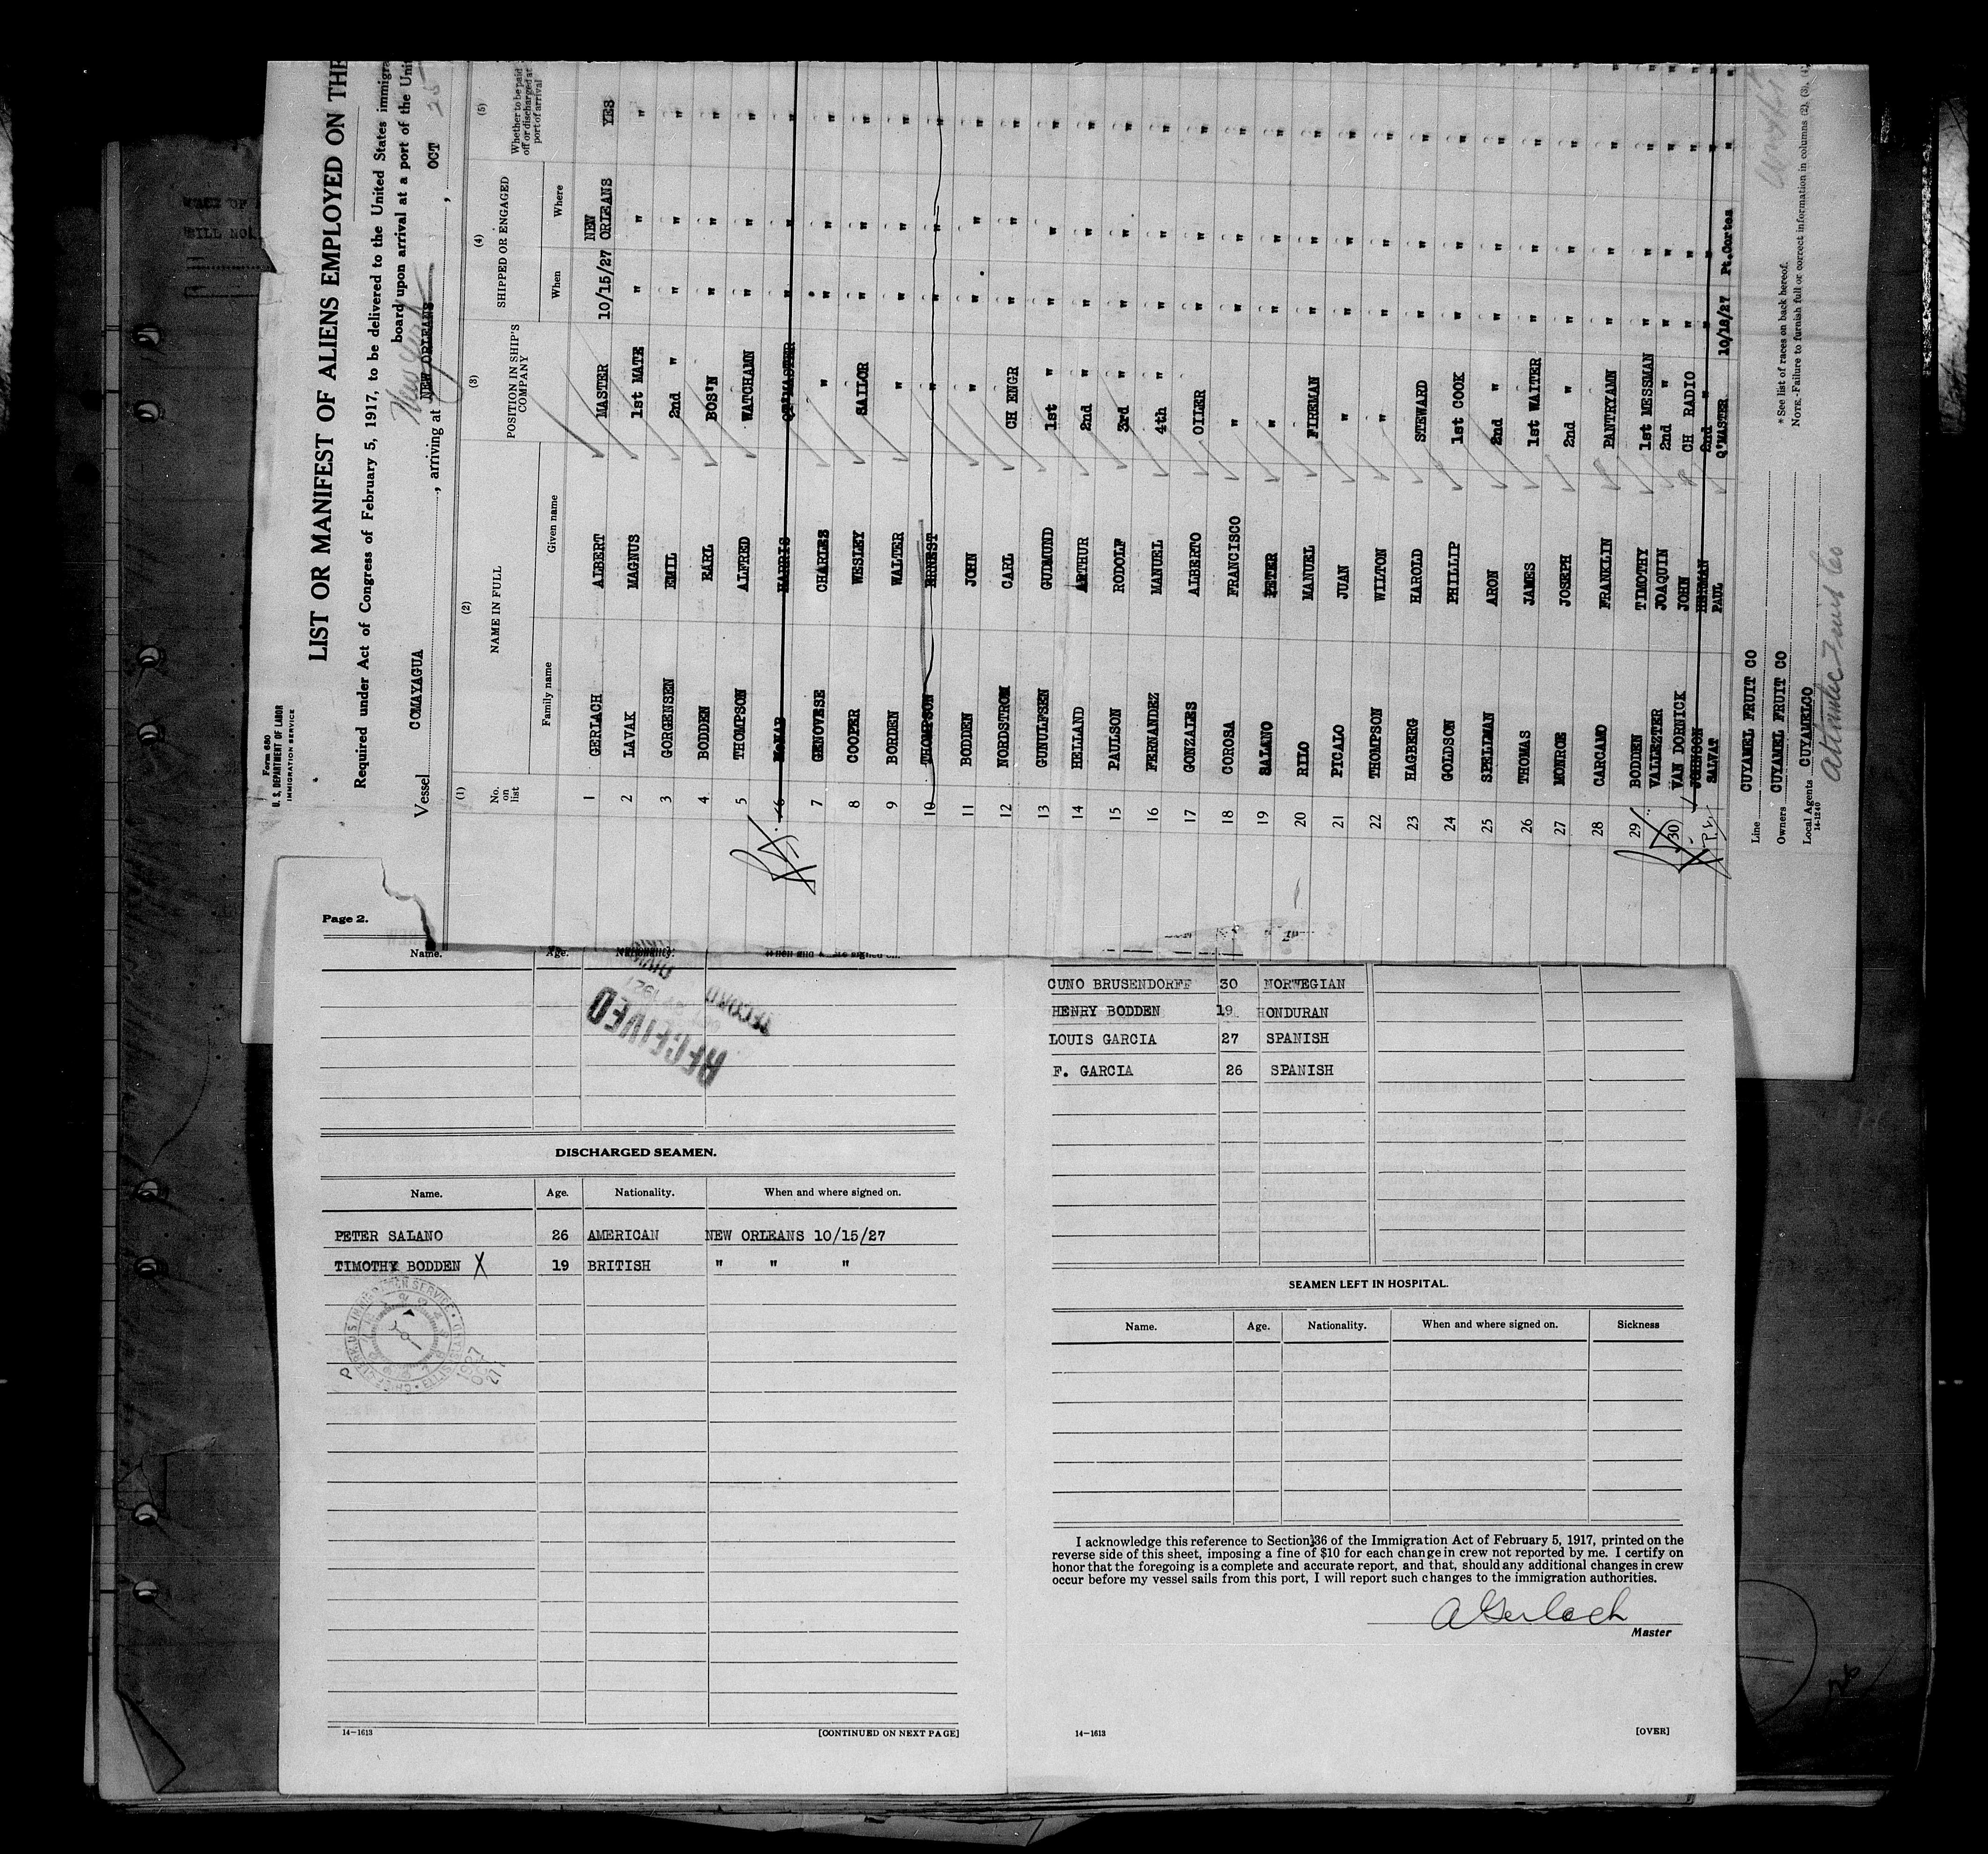 Form 680
U. S. DEPARTMENT OF LABOR
IMMIGRATION SERVICE
LIST OR MANIFEST OF ALIENS EMPLOYED ON THE
Required under Act of Congress of February 5, 1917, to be delivered to the United States immigra
board upon arrival at a port of the Unit
New York
Vessel COMAYAGUA, arriving at NEW ORLEANS, OCT 25
(1) (2) (3) (4) (5)
No. on list NAME IN FULL POSITION IN SHIP'S COMPANY SHIPPED OR ENGAGED Whether to be paid off or discharged at port of arrival
Family name Given name When Where
1 GERLACH ALBERT MASTER 10/15/27 NEW ORLEANS YES
2 LAVAK MAGNUS 1st MATE " " "
3 GORGENSEN EMIL 2nd " " " "
4 BODDEN EARL BOS'N " " "
5 THOMPSON ALFRED WATCHAMN " " "
6 McNAB HARRIS QT'MASTER " " "
7 GENOVESE CHARLES " " " "
8 COOPER WESLEY SAILOR " " "
9 BORDEN WALTER " " " "
10 THOMPSON ERNEST " " " "
11 BODDEN JOHN " " " "
12 NORDSTROM CARL CH ENGR " " "
13 GUNULFSEN GUDMUND 1st " " " "
14 HELLAND ARTHUR 2nd " " " "
15 PAULSON RODOLF 3rd " " " "
16 FERNANDEZ MANUEL 4th " " " "
17 GONZALES ALBERTO OILER " " "
18 COROSA FRANCISCO " " " "
19 SALANO PETER " " " "
20 RILO MANUEL FIREMAN " " "
21 PICALO JUAN " " " "
22 THOMPSON WILTON " " " "
23 HAGBERG HAROLD STEWARD " " "
24 GOLDSON PHILLIP 1st COOK " " "
25 SPELLMAN ARON 2nd " " " "
26 THOMAS JAMES 1st WAITER " " "
27 MONROE JOSEPH 2nd " " " "
28 CARCAMO FRANKLIN PANTRYAMN " " "
29 BODDEN TIMOTHY 1st MESSMAN " " "
VALLEZTER JOAQUIN 2nd " " " "
30 VAN DORNICK JOHN CH RADIO " " "
JOHNSON HERMAN 2nd " " " "
SALVAT PAUL Q'MASTER 10/18/27 Pt.Cortes "
Line CUYAMEL FRUIT CO
Owners CUYAMEL FRUIT CO
Local Agents CUYAMELCO
14-1240
Atlantic Fruit Co
* See list of races on back hereof.
NOTE.-Failure to furnish full or correct information in columns (2), (3), (4)
Page 2.
Name. Age. Nationality.
RECEIVED
RECORD
DISCHARGED SEAMEN.
Name. Age. Nationality. When and where signed on.
PETER SALANO 26 AMERICAN NEW ORLEANS 10/15/27
TIMOTHY BODDEN X 19 BRITISH " " "
14-1613 [CONTINUED ON NEXT PAGE]
CUNO BRUSENDORFF 30 NORWEGIAN
HENRY BODDEN 19 HONDURAN
LOUIS GARCIA 27 SPANISH
F. GARCIA 26 SPANISH
SEAMEN LEFT IN HOSPITAL.
Name. Age. Nationality. When and where signed on. Sickness
I acknowledge this reference to Section 36 of the Immigration Act of February 5, 1917, printed on the
reverse side of this sheet, imposing a fine of $10 for each change in crew not reported by me. I certify on
honor that the foregoing is a complete and accurate report, and that, should any additional changes in crew
occur before my vessel sails from this port, I will report such changes to the immigration authorities.
A Gerlach
Master
14-1613 [OVER]